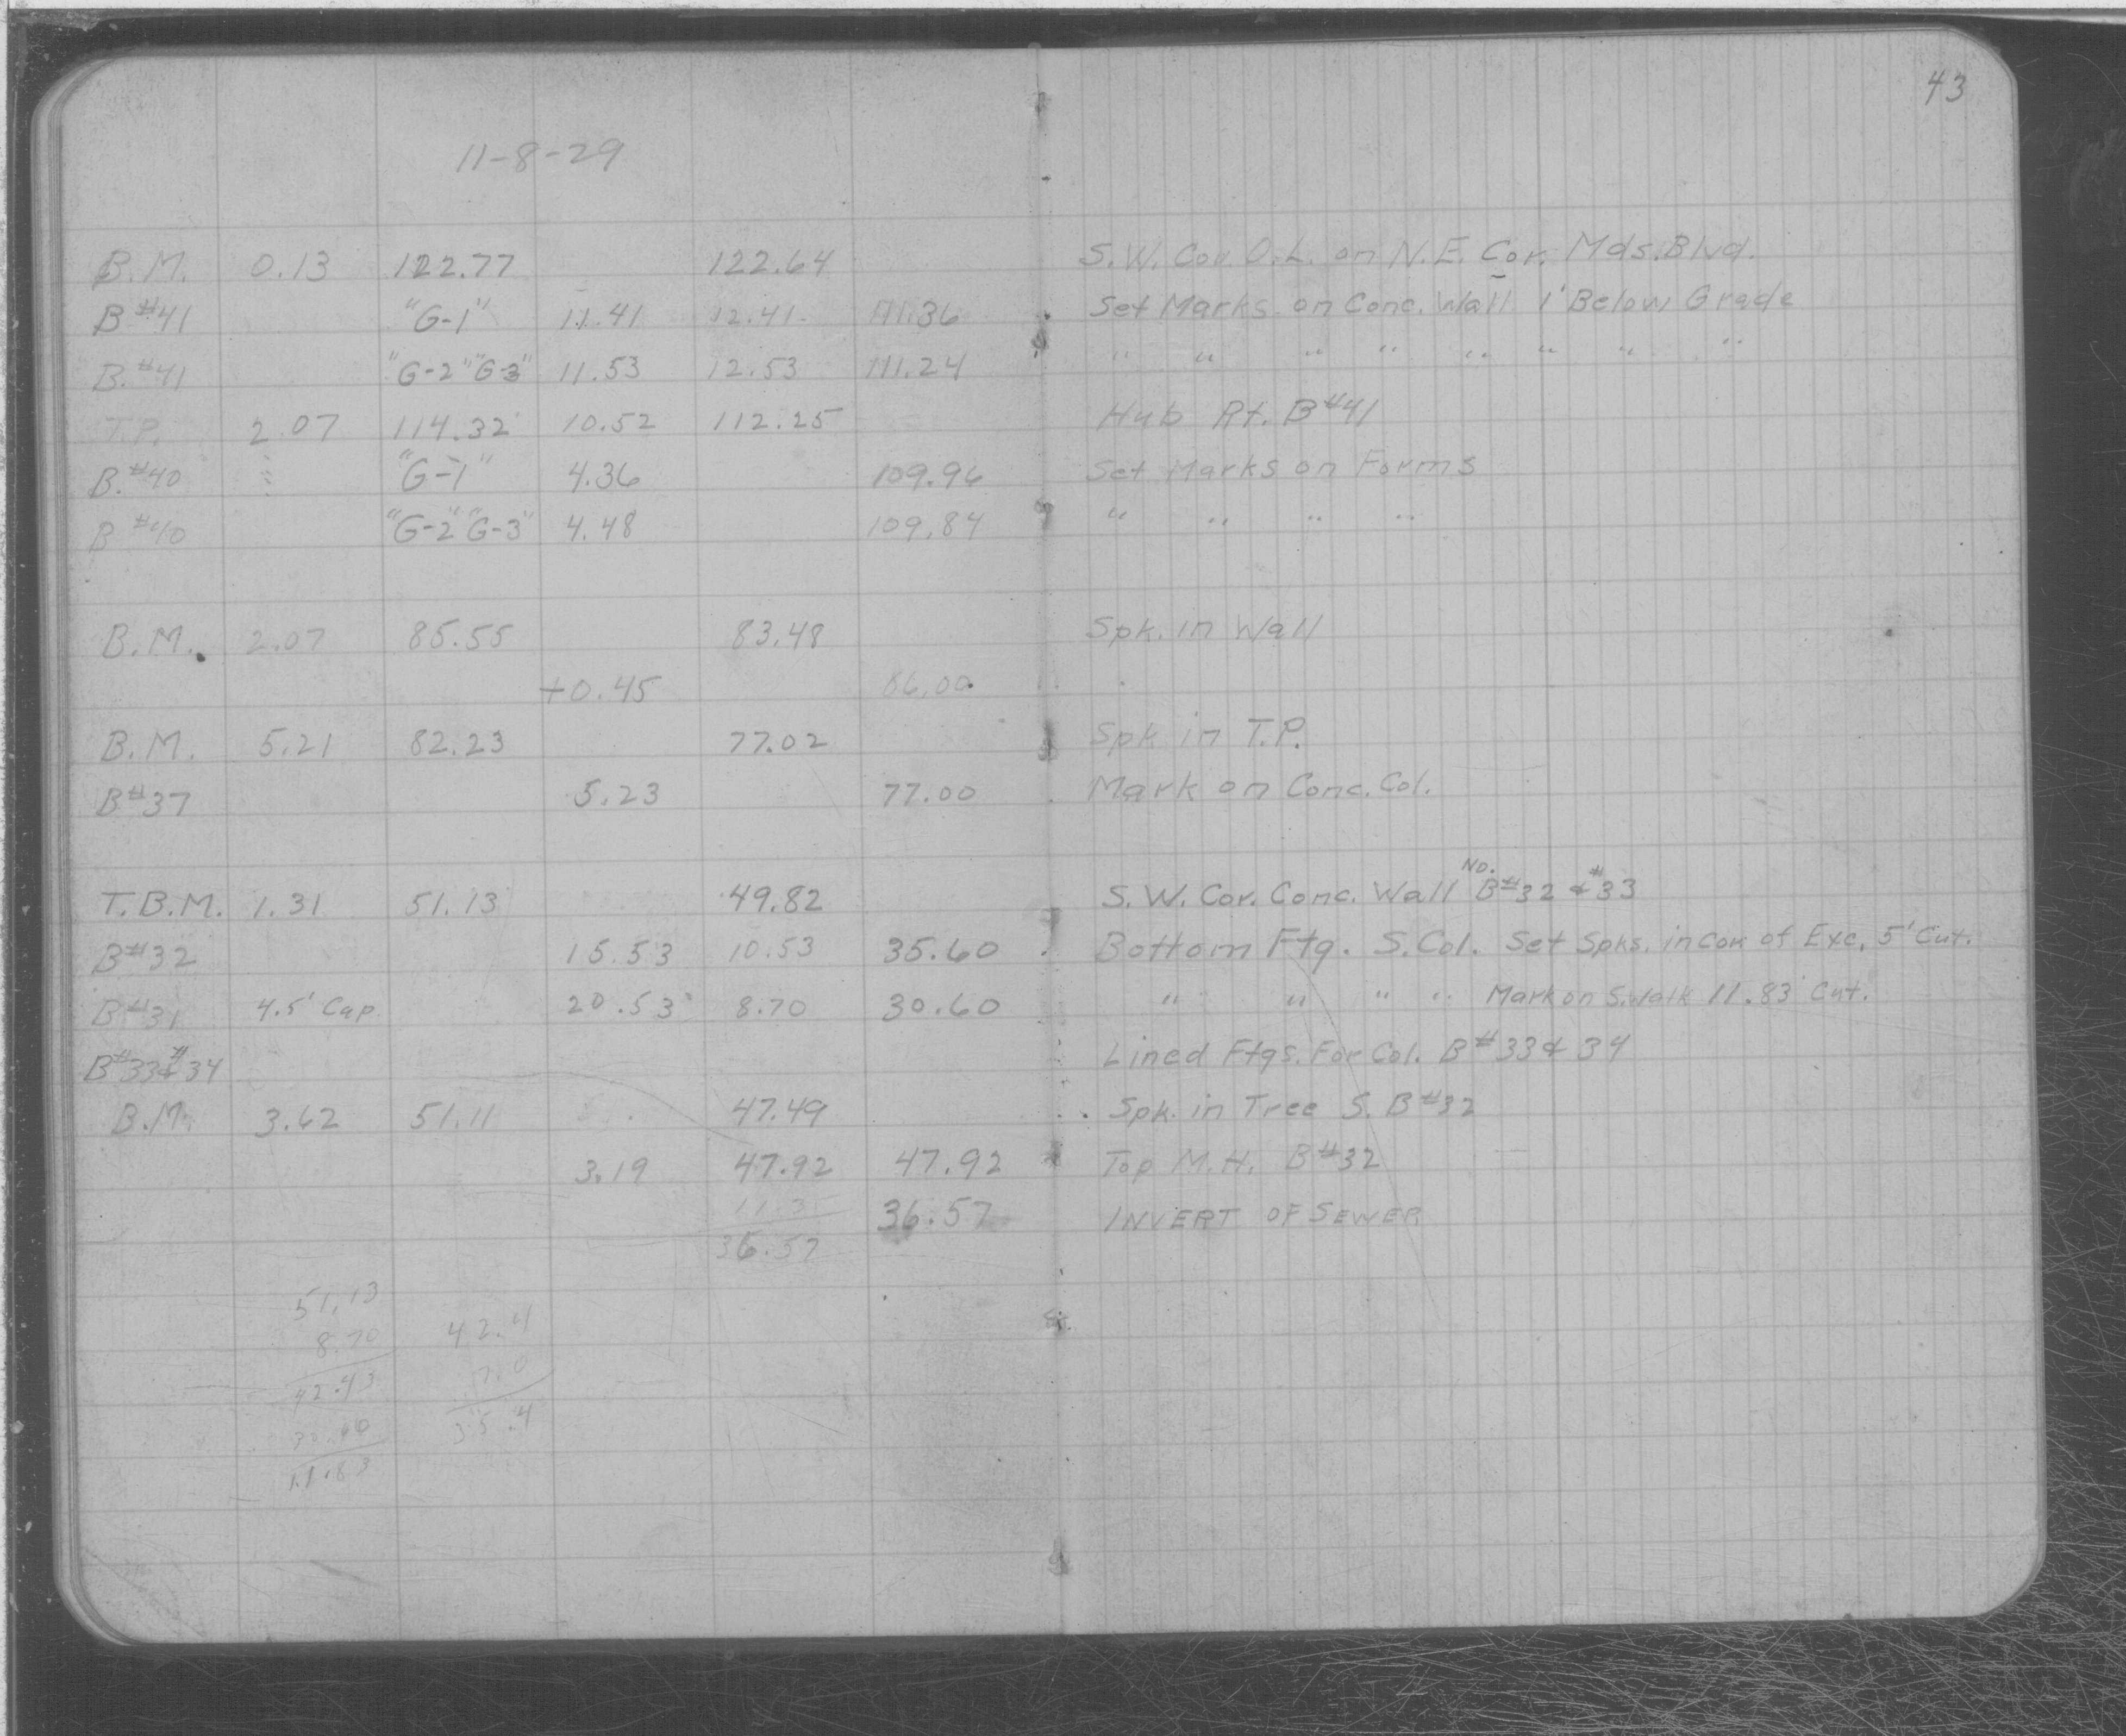 43
11-8-29
B.M. 0.13 122.77 122.64 S.W. Cor. O.L. on N.E. Cor. Mds. Blvd.
B#41 "G-1" 11.41 12.41 111.36 Set Marks on Conc. Wall 1' Below Grade
B.#41 "G-2" "G-3" 11.53 12.53 111.24 " " " " " " " "
T.P. 2.07 114.32 10.52 112.25 Hub Rt. B#41
B.#40 "G-1" 4.36 109.96 Set Marks on Forms
B#40 "G-2" "G-3" 4.48 109.84 " " " "
B.M. 2.07 85.55 83.48 Spk. in Wall
+0.45 86.00
B.M. 5.21 82.23 77.02 Spk in T.P.
B#37 5.23 77.00 Mark on Conc. Col.
T.B.M. 1.31 51.13 49.82 S.W. Cor. Conc. Wall No. B#32 & #33
B#32 15.53 10.53 35.60 Bottom Ftg. S. Col. Set Spks. in Cor. of Exc. 5' Cut.
B#31 4.5' Cap. 20.53 8.70 30.60 " " " " Mark on S. Walk 11.83 Cut.
B#33 & #34 Lined Ftgs. For Col. B#33 & 34
B.M. 3.62 51.11 47.49 Spk. in Tree S. B#32
3.19 47.92 47.92 Top M.H. B#32
11.3 36.57 INVERT OF SEWER
36.57
51.13
8.70 42.4
42.43 7.0
30.60 35.4
11.83